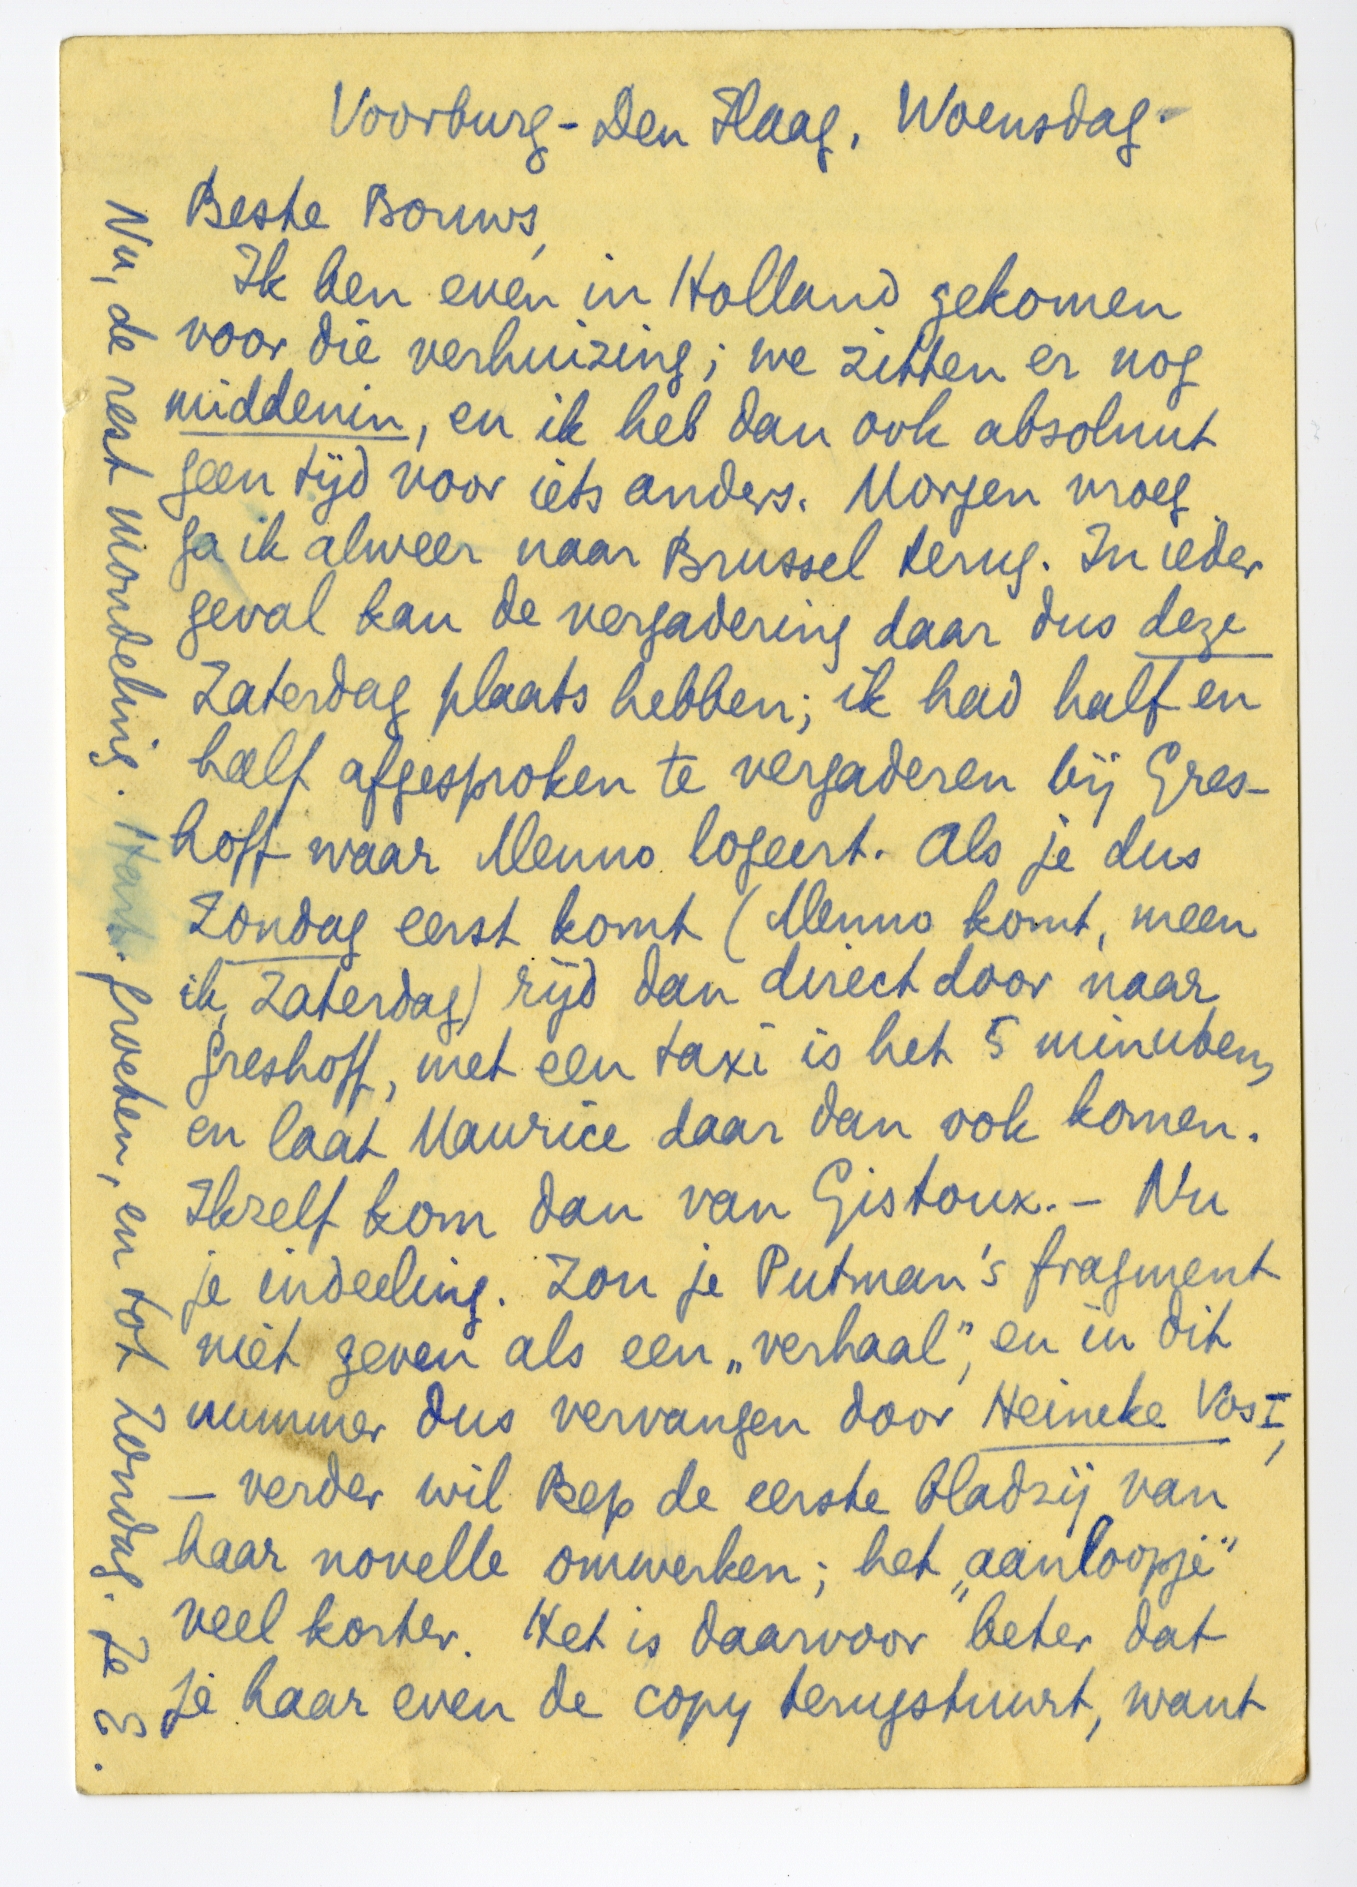 Voorburg - Den Haag, Woensdag.
Beste Bouws,
Ik ben even in Holland gekomen
voor die verhuizing; we zitten er nog
middenin, en ik heb dan ook absoluut
geen tijd voor iets anders. Morgen vroeg
ga ik alweer naar Brussel terug. In ieder
geval kan de vergadering daar dus deze
Zaterdag plaats hebben; ik had half en
half afgesproken te vergaderen bij Gres-
hoff waar Menno logeert. Als je dus
Zondag eerst komt (Menno komt, meen
ik, Zaterdag) rijd dan direct door naar
Greshoff, met een taxi is het 5 minuten,
en laat Maurice daar dan ook komen.
Ikzelf kom dan van Gistoux. - Nu
je indeeling. Zou je Putman's fragment
niet geven als een „verhaal”, en in dit
nummer dus vervangen door Heineke Vos I,
- verder wil Bep de eerste bladzij van
haar novelle omwerken; het „aanloopje”
veel korter. Het is daarvoor beter dat
je haar even de copy terugstuurt, want
Nu, de rest mondeling. Hart. groeten, en tot Zondag. Je E.